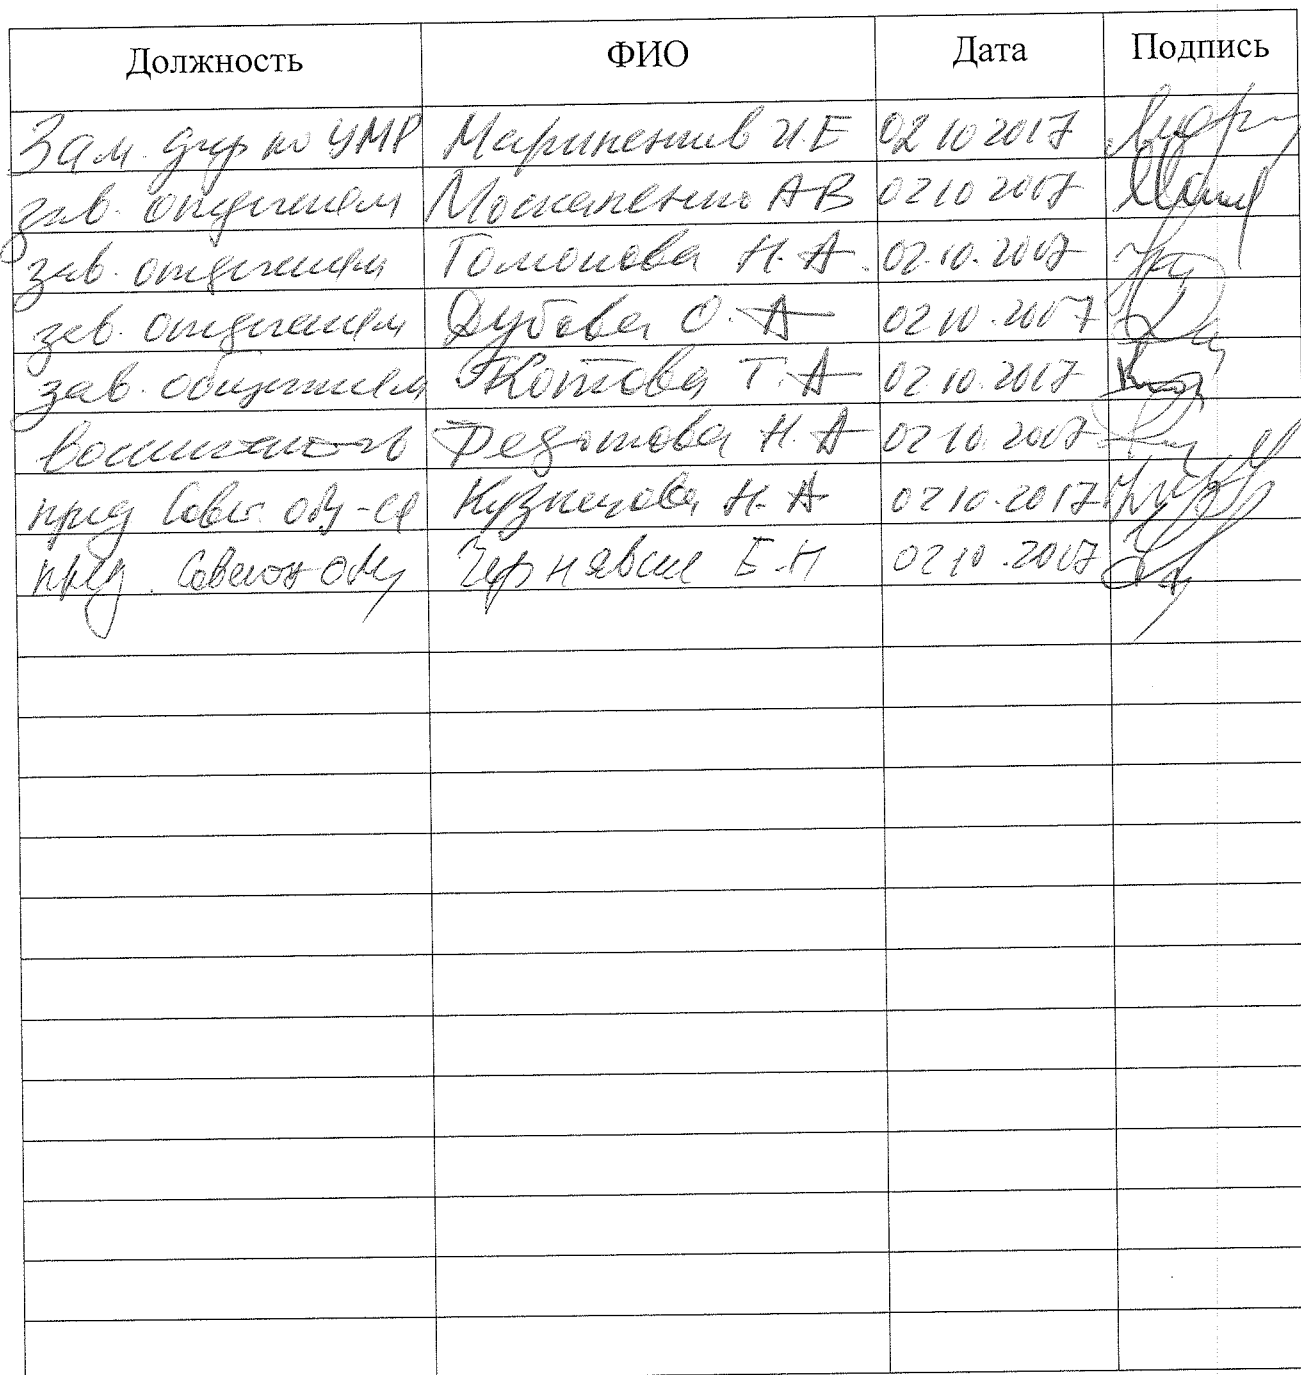 Должность ФИО Дата Подпись
Зам. дир по УМР Мариненков И.Е 02 10 2017
зав. отделением Москаленко А В 02 10 2017
зав. отделением Томонова Н. А. 02.10.2017
зав. отделением Дубова О. А 02 10.2017
зав. общежитием Котова Т. А 02.10.2017
воспитатель Федотова Н. А 02 10. 2017
пред Совет. об-ся Кузнецова Н. А 02 10.2017
пред. Совета Б. Н 02 10.2017